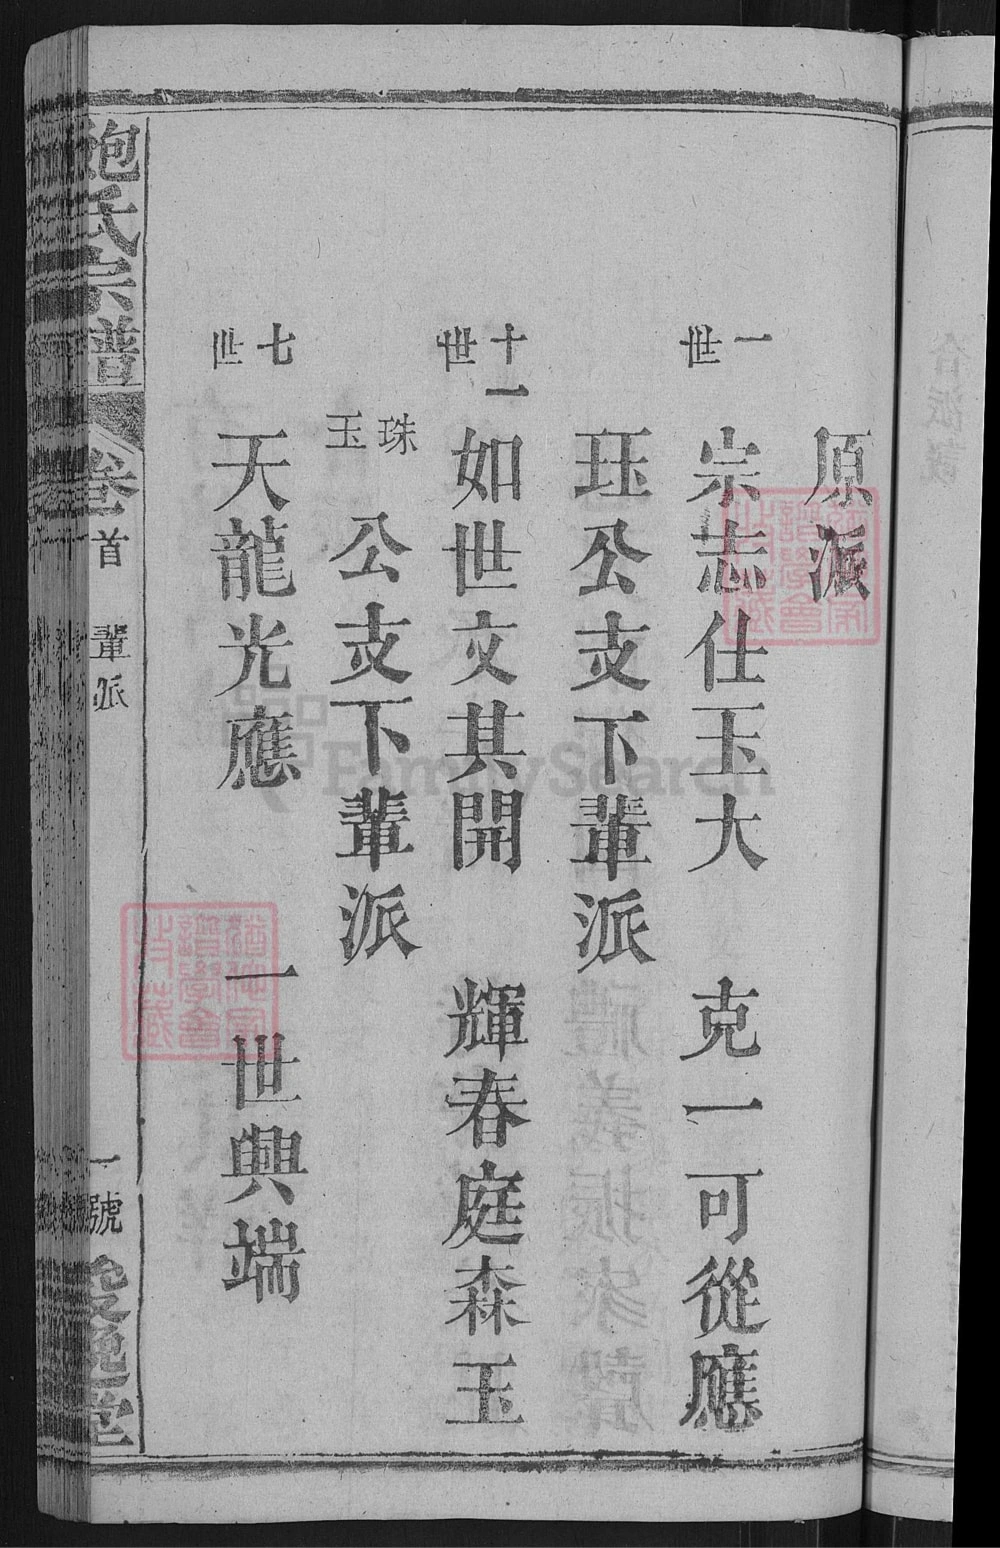 原派
一世 宗志仕玉大 克一可從應
珏公支下輩派
十一世 如世文其開 輝春庭森玉
珠玉 公支下輩派
七世 天龍光應 一世興端
鮑氏宗譜 卷首 輩派 一號 堂
FamilySearch